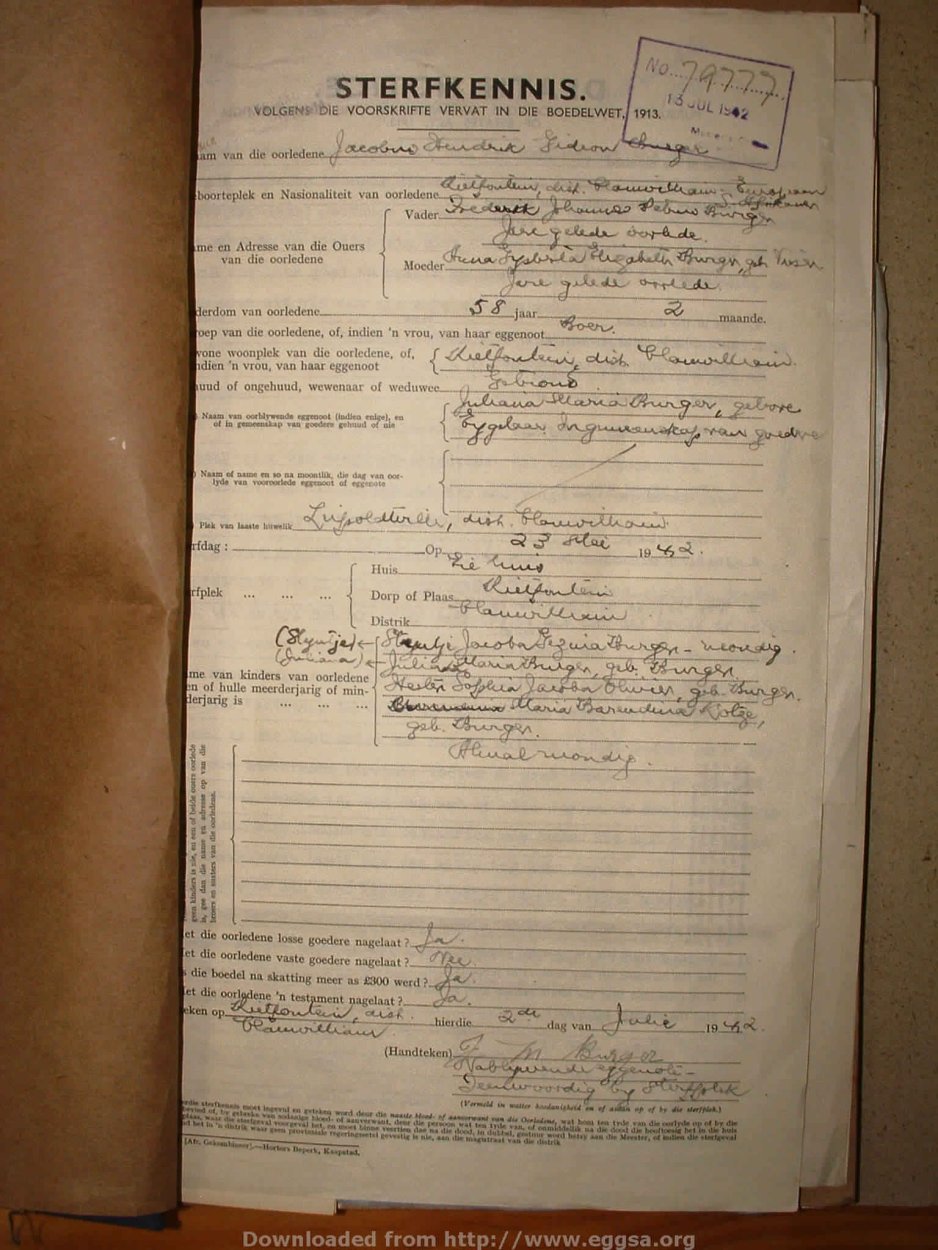 No. 79777
13 JUL 1942
STERFKENNIS.
VOLGENS DIE VOORSKRIFTE VERVAT IN DIE BOEDELWET, 1913.
aam van die oorledene Jacobus Hendrik Gideon Burger
boorteplek en Nasionaliteit van oorledene Rietfontein, dist. Clanwilliam - European
S. Afrikaner
Vader Frederik Johannes Petrus Burger
Jare gelede oorlede.
me en Adresse van die Ouers
van die oorledene
Moeder Anna Elizabeth Burger, geb. Visser
Jare gelede oorlede.
derdom van oorledene 58 jaar 2 maande.
roep van die oorledene, of, indien 'n vrou, van haar eggenoot Boer.
wone woonplek van die oorledene, of,
ndien 'n vrou, van haar eggenoot
Rietfontein, dist. Clanwilliam.
uud of ongehuud, wewenaar of weduwee Getroud
Naam van oorblywende eggenoot (indien enige), en
of in gemeenskap van goedere gehuud of nie
Juliana Maria Burger, gebore
Zygelaar. In gemeenskap van goedere
Naam of name en so na moontlik, die dag van oor-
lyde van vooroorlede eggenoot of eggenote
Plek van laaste huwelik Leipoldtville, dist. Clanwilliam
rfdag : Op 23 Mei 1942.
Huis Die huis
rfplek ... ... ... Dorp of Plaas Rietfontein
Distrik Clanwilliam
(Steyntje) Steyntje Jacoba Burger - mondig.
(Juliana) Juliana Maria Burger, geb. Burger.
me van kinders van oorledene
en of hulle meerderjarig of min-
derjarig is ... ... ...
Hester Sophia Jacoba Olivier, geb. Burger.
Maria Barendina Kotze,
geb. Burger.
Almal mondig.
geen kinders is nie, en een of beide ouers oorlede
is, gee dan die name en adresse op van die
broers en susters van die oorledene.
et die oorledene losse goedere nagelaat? Ja.
et die oorledene vaste goedere nagelaat? Nee.
s die boedel na skatting meer as £300 werd? Ja.
et die oorledene 'n testament nagelaat? Ja.
eken op Rietfontein, dist. hierdie 2de dag van Julie 1942.
Clanwilliam
(Handteken) J M Burger
Nablywende eggenote -
Teenwoordig by sterfplek
(Vermeld in watter hoedanigheid en of aldan op of by die sterfplek.)
[Afr. Gekombineer].—Hortors Beperk, Kaapstad.
Downloaded from http://www.eggsa.org